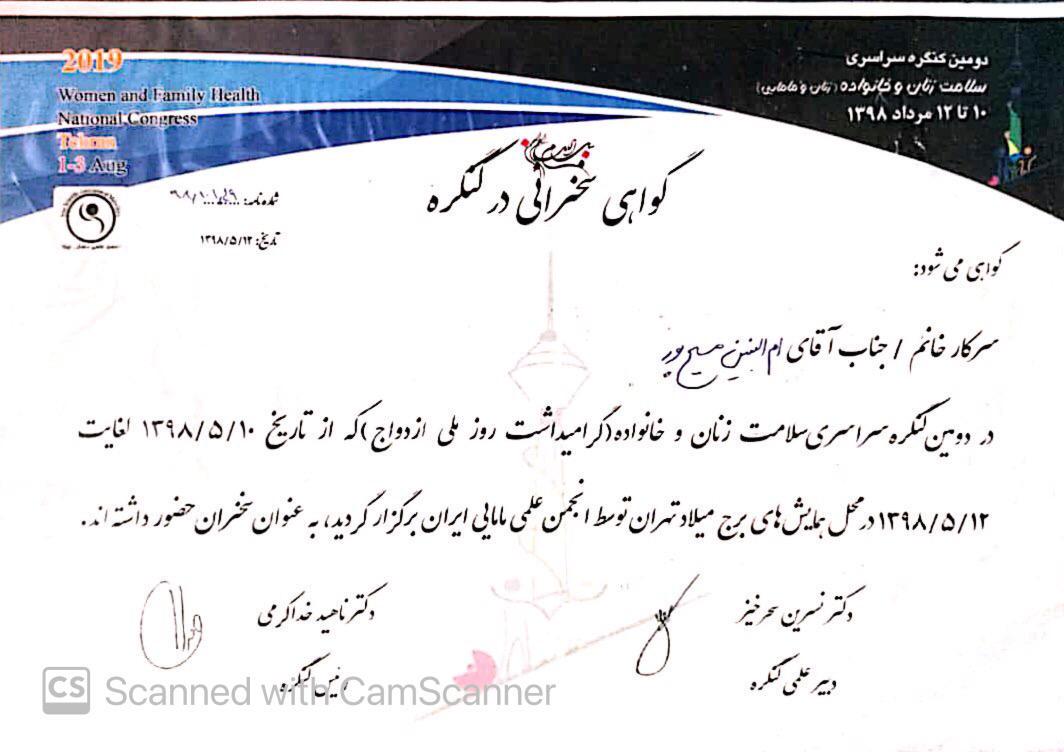 2019
Women and Family Health
National Congress
Tehran
1-3 Aug
دومین کنگره سراسری
سلامت زنان و خانواده (زنان و مامایی)
۱۰ تا ۱۲ مرداد ۱۳۹۸
گواهی سخنرانی در کنگره
شماره نامه:
تاریخ: ۱۳۹۸/۵/۱۲
گواهی می شود:
سرکار خانم / جناب آقای ام البنین مسیح پور
در دومین کنگره سراسری سلامت زنان و خانواده (گرامیداشت روز ملی ازدواج) که از تاریخ ۱۳۹۸/۵/۱۰ لغایت
۱۳۹۸/۵/۱۲ در محل همایش های برج میلاد تهران توسط انجمن علمی مامایی ایران برگزار گردید، به عنوان سخنران حضور داشته اند.
دکتر نسرین سحرخیز
دبیر علمی کنگره
دکتر ناهید خداکرمی
رئیس کنگره
CS Scanned with CamScanner